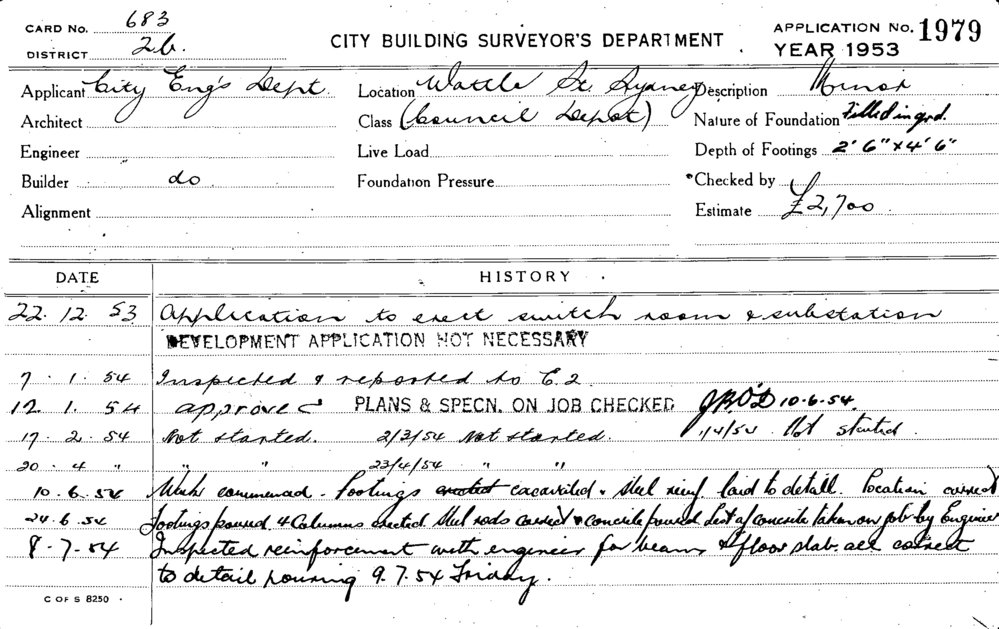 CARD No. 683
DISTRICT 2b.
CITY BUILDING SURVEYOR'S DEPARTMENT
APPLICATION No. 1979
YEAR 1953
Applicant City Eng's Dept. Location Wattle St. Sydney Description Minor
Architect Class (Council Depot) Nature of Foundation Filled in grd.
Engineer Live Load Depth of Footings 2' 6" x 4' 6"
Builder do Foundation Pressure Checked by
Alignment Estimate £2,700
DATE HISTORY
22. 12. 53 Application to erect switch room & substation
DEVELOPMENT APPLICATION NOT NECESSARY
7. 1. 54 Inspected & reported to E.2
12. 1. 54 approved PLANS & SPECN. ON JOB CHECKED J.B.O'D 10-6-54.
17. 2. 54 Not started. 2/3/54 Not started. 1/4/54 Not started.
20. 4 " " " 23/4/54 " "
10. 6. 54 Work commenced. Footings erected excavated & steel reinf. laid to detail. Location correct
24. 6. 54 Footings poured & Columns erected Steel rods correct & concrete poured Test of concrete taken on job by Engineer
8. 7. 54 Inspected reinforcement with engineer for beams & floor slab. all correct
to detail pouring 9. 7. 54 Friday.
C OF S 8250